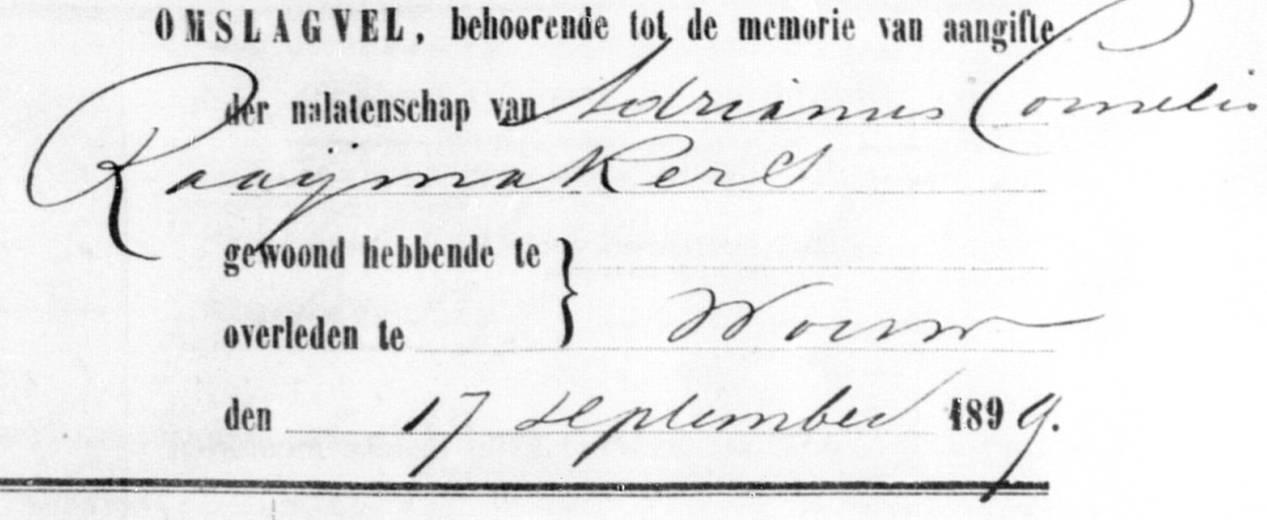 OMSLAGVEL, behoorende tot de memorie van aangifte
der nalatenschap van Adrianus Cornelis
Raaijmakers
gewoond hebbende te }
overleden te } Wouw
den 17 September 1899.